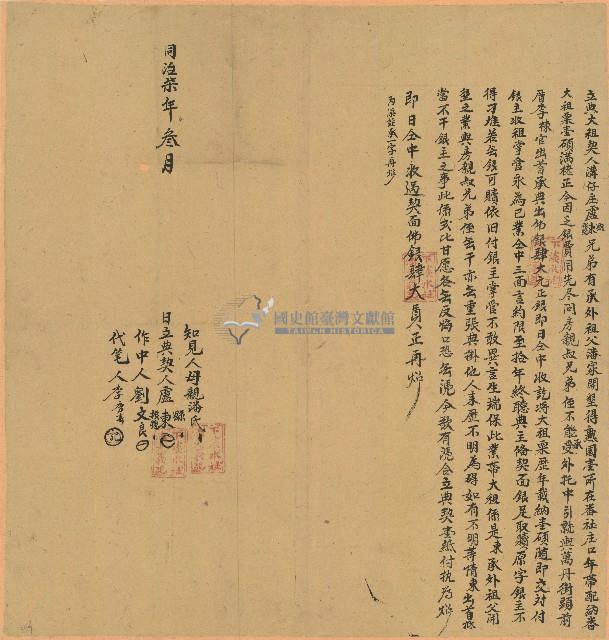 立典大租契人溝仔庄盧東兄弟有承外祖父潘家開墾得田壹所在番社庄口年帶配納番
大租粟壹碩滿極正今因乏銀費用先尽问房親叔兄弟侄不能承受外托中引就與萬丹街頭前
厝李棟官出首承典出佛銀肆大元正銀即日仝中收訖將大租粟歷年載納壹碩隨即交付
銀主收租掌管永為己業仝中三面言約限至拾年終聽典主俻契面銀足取贖原字銀主不
得刁难若無銀可贖依旧付銀主掌管不敢異言生端保此業帶大租係是東承外祖父開
墾之業與房親叔兄弟侄無干亦無重張典掛他人来歷不明為碍如有不明等情東出首抵
當不干銀主之事此係二比甘愿各無反悔口恐無凴今欲有凴合立典契壹紙付执为炤
即日仝中收過契面佛銀肆大員正再炤
同治柒年叁月
知見人母親潘氏
日立典契人盧東
作中人劉文良
代笔人李
國史館臺灣文獻館
TAIWAN HISTORICA